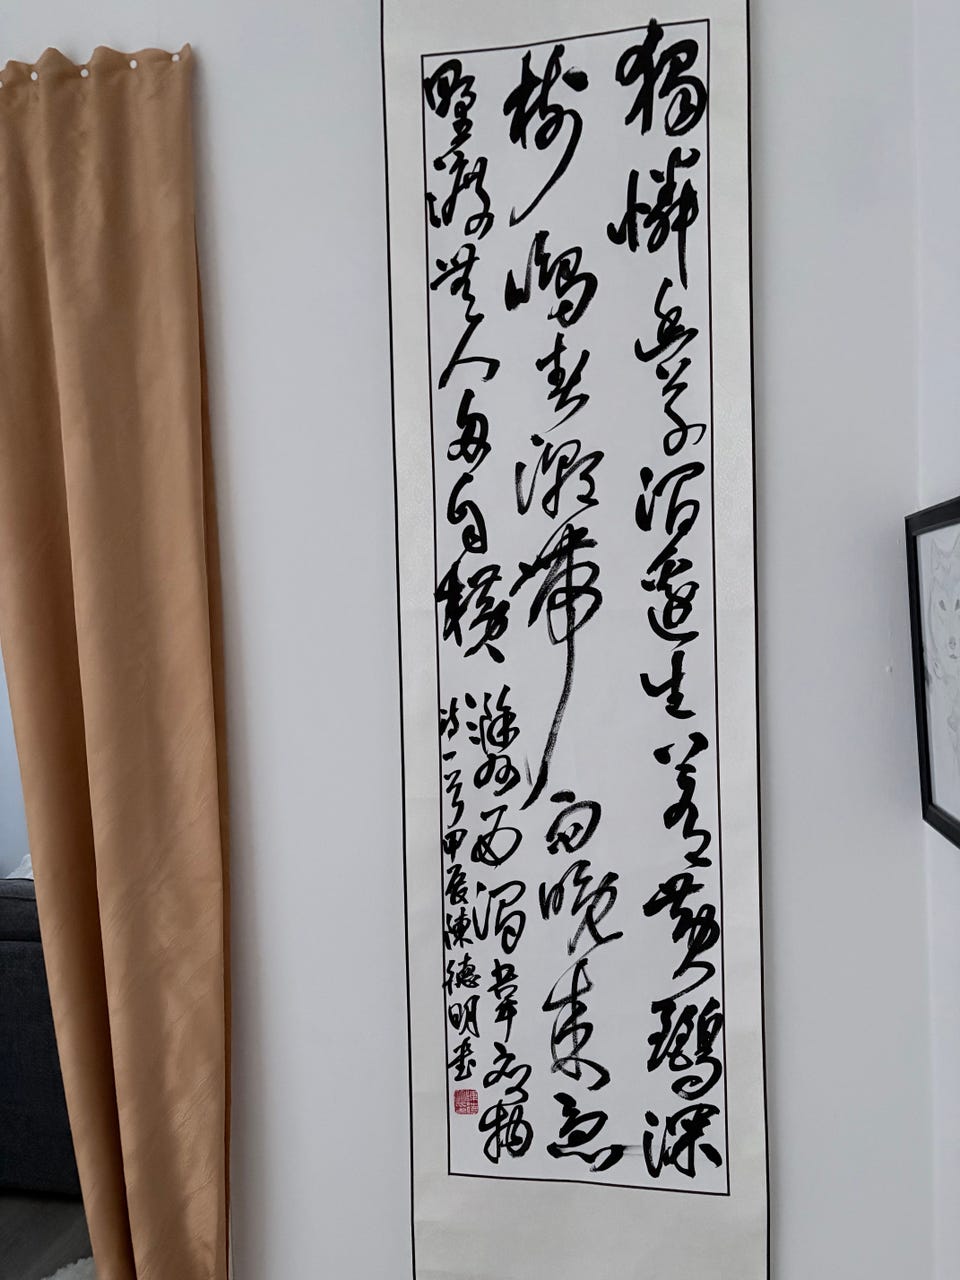 獨憐幽草澗邊生上有黃鸝深
樹鳴春潮帶雨晚來急
野渡無人舟自橫
滁州西澗韋應物
詩一首甲辰陳德明書